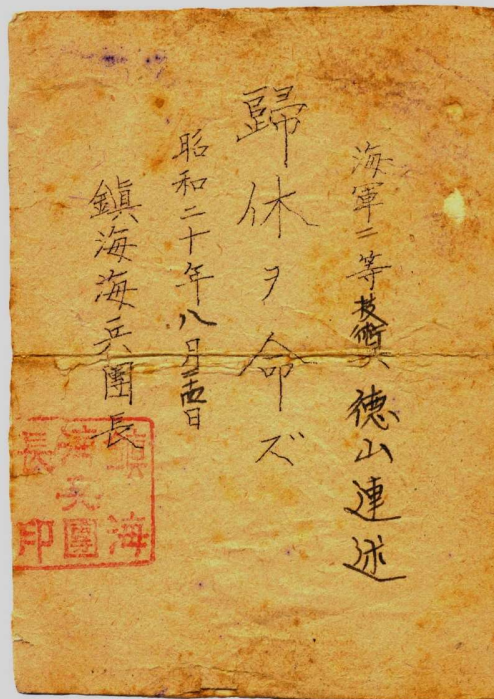 海軍二等技術兵 徳山連述
歸休ヲ命ズ
昭和二十年八月二十四日
鎭海海兵團長
鎭海
海兵團
長印